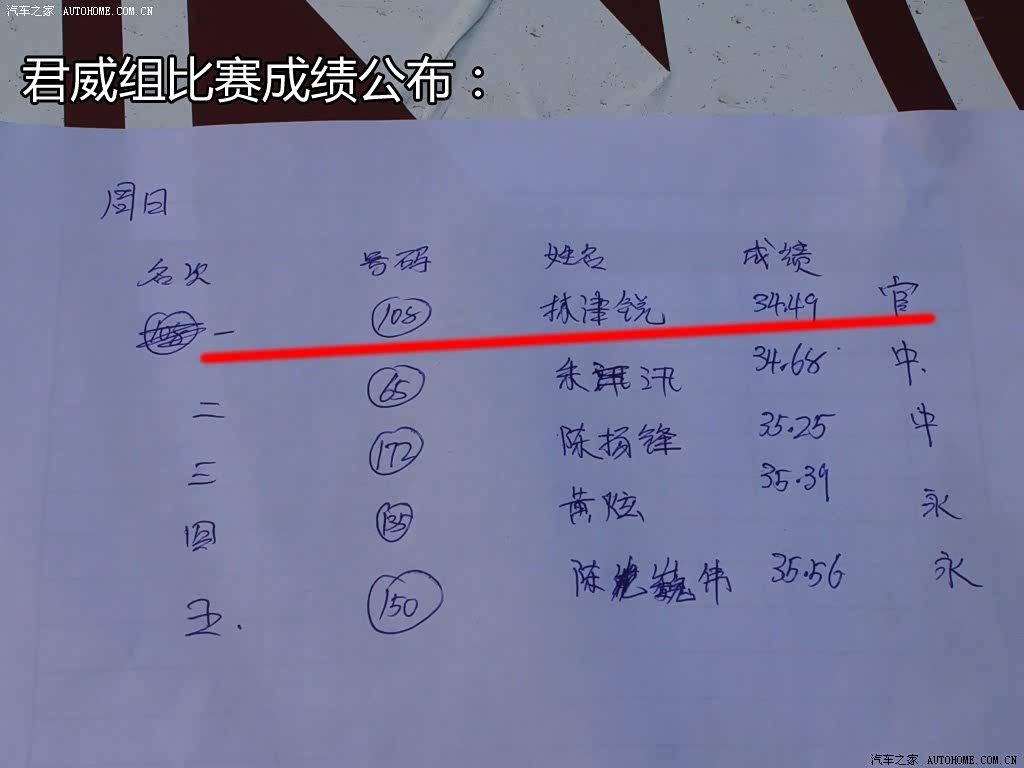 汽车之家 AUTOHOME.COM.CN
君威组比赛成绩公布：
周日
名次 号码 姓名 成绩
一 108 林津锐 34.49 官
二 65 朱汛 34.68 中
三 172 陈扬锋 35.25 中
四 135 黄炫 35.39 永
五. 150 陈巍伟 35.56 永
汽车之家 AUTOHOME.COM.CN